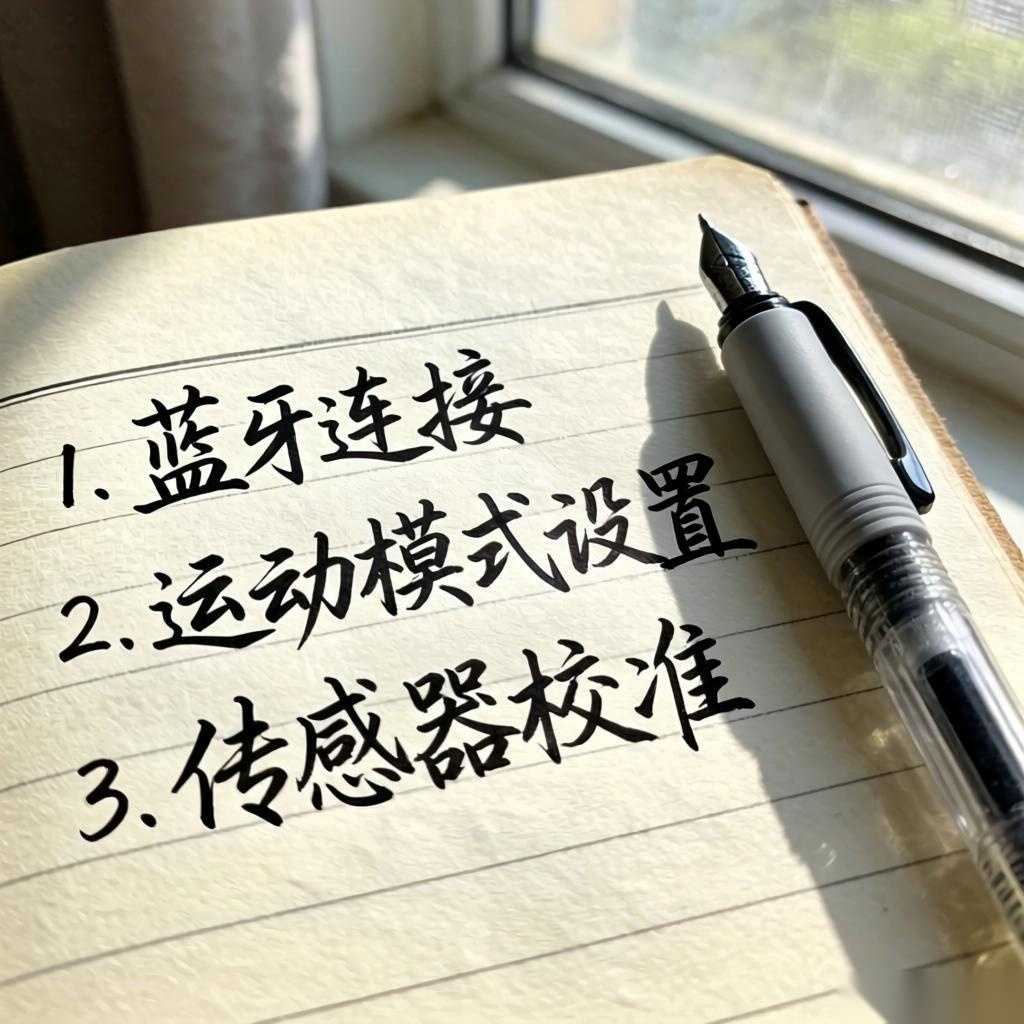 1. 蓝牙连接
2. 运动模式设置
3. 传感器校准